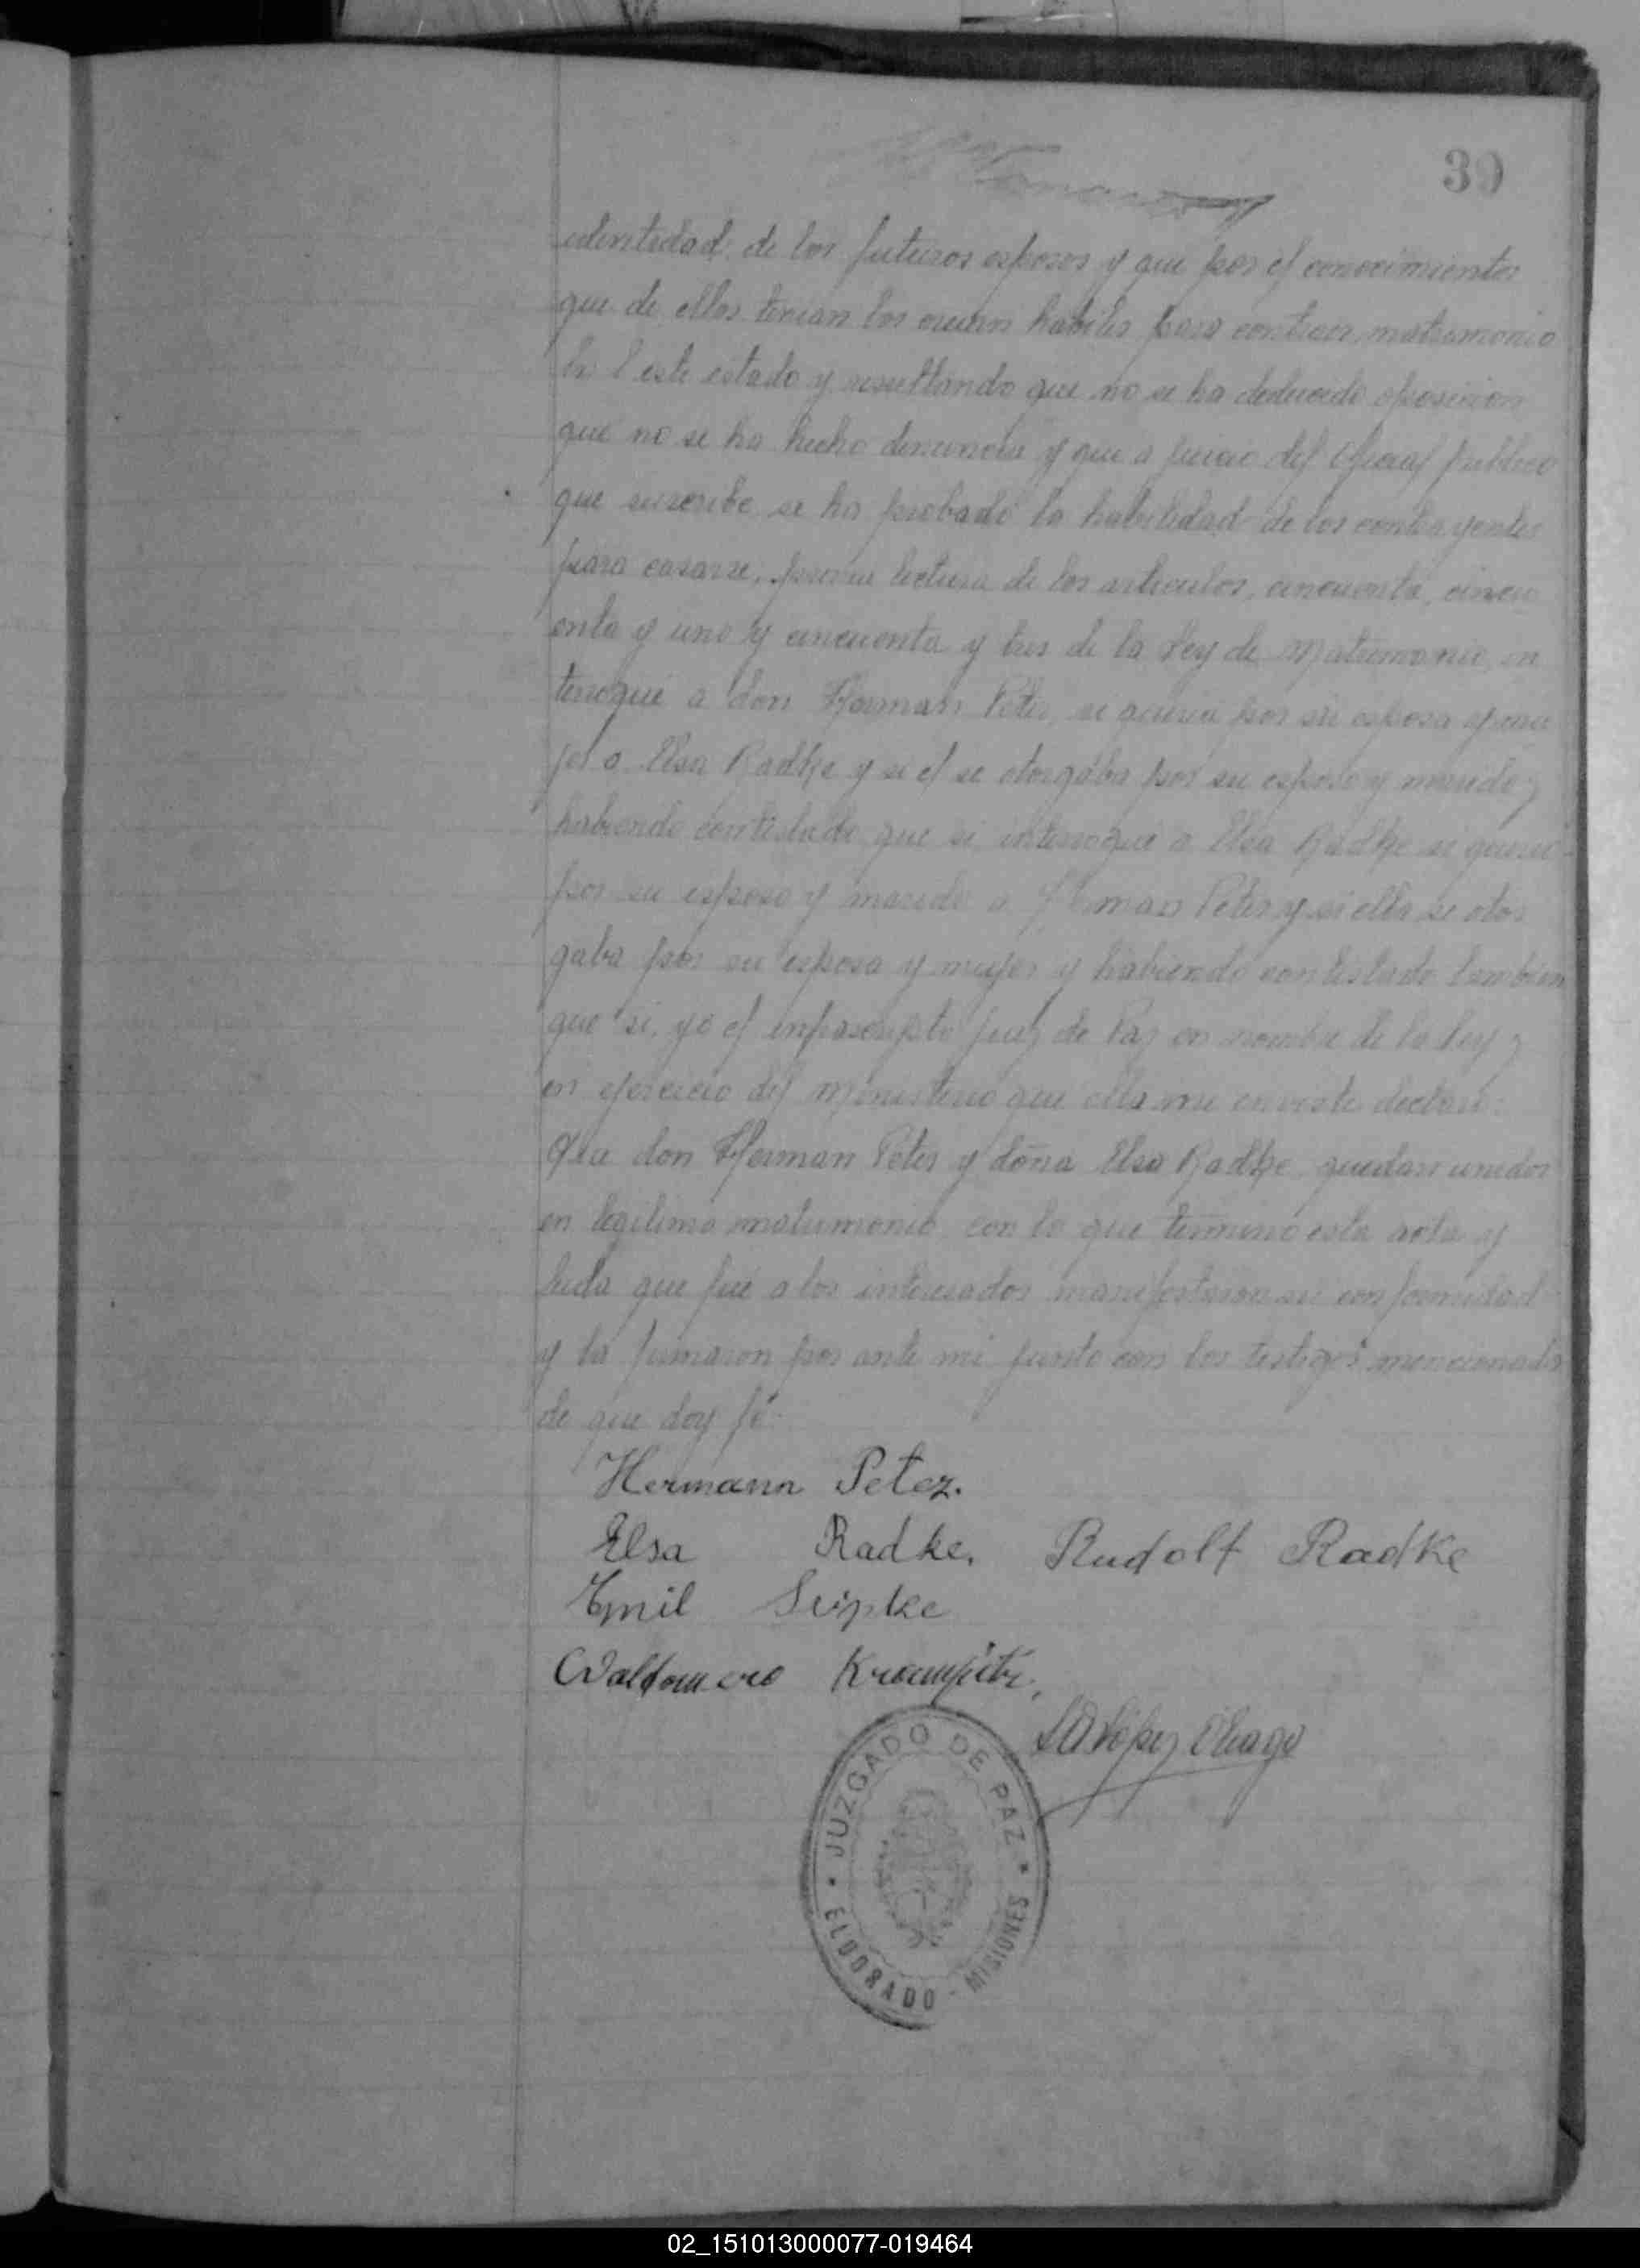 39
identidad de los futuros esposos y que por el conocimiento
que de ellos tenian los creian habiles para contraer matrimonio
este estado y resultando que no se ha deducido oposicion
que no se ha hecho denuncia y que a juicio del Oficial publico
que suscribe se ha probado la habilidad de los contrayentes
para casarse, previa lectura de los articulos, cincuenta, cincu
enta y uno y cincuenta y tres de la Ley de Matrimonio, in
terogué a don Herman Peter, si queria por su esposa y mu
jer a Elsa Radke y si el se otorgaba por su esposo y marido y
habiendo contestado que si interogué a Elsa Radke si queria
por su esposo y marido a Herman Peter y si ella se otor
gaba por su esposa y mujer y habiendo contestado tambien
que si, yo el infrascripto Juez de Paz en nombre de la Ley y
en ejercicio del Ministerio que ella me enviste declaro:
Que don Herman Peter y doña Elsa Radke quedan unidos
en legitimo matrimonio con lo que terminó esta acta y
leida que fué a los interesados manifestaron su conformidad
y la firmaron por ante mi junto con los testigos mencionados
de que doy fé.
Hermann Peter.
Elsa Radke. Rudolf Radke
Emil
Waldomero
López
JUZGADO DE PAZ
ELDORADO - MISIONES
02_151013000077-019464